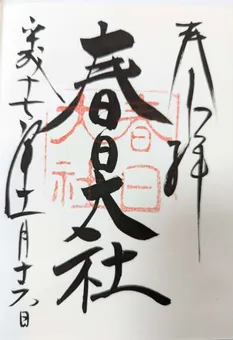 奉拝
春日大社
春日大社
平成十七年十一月十六日